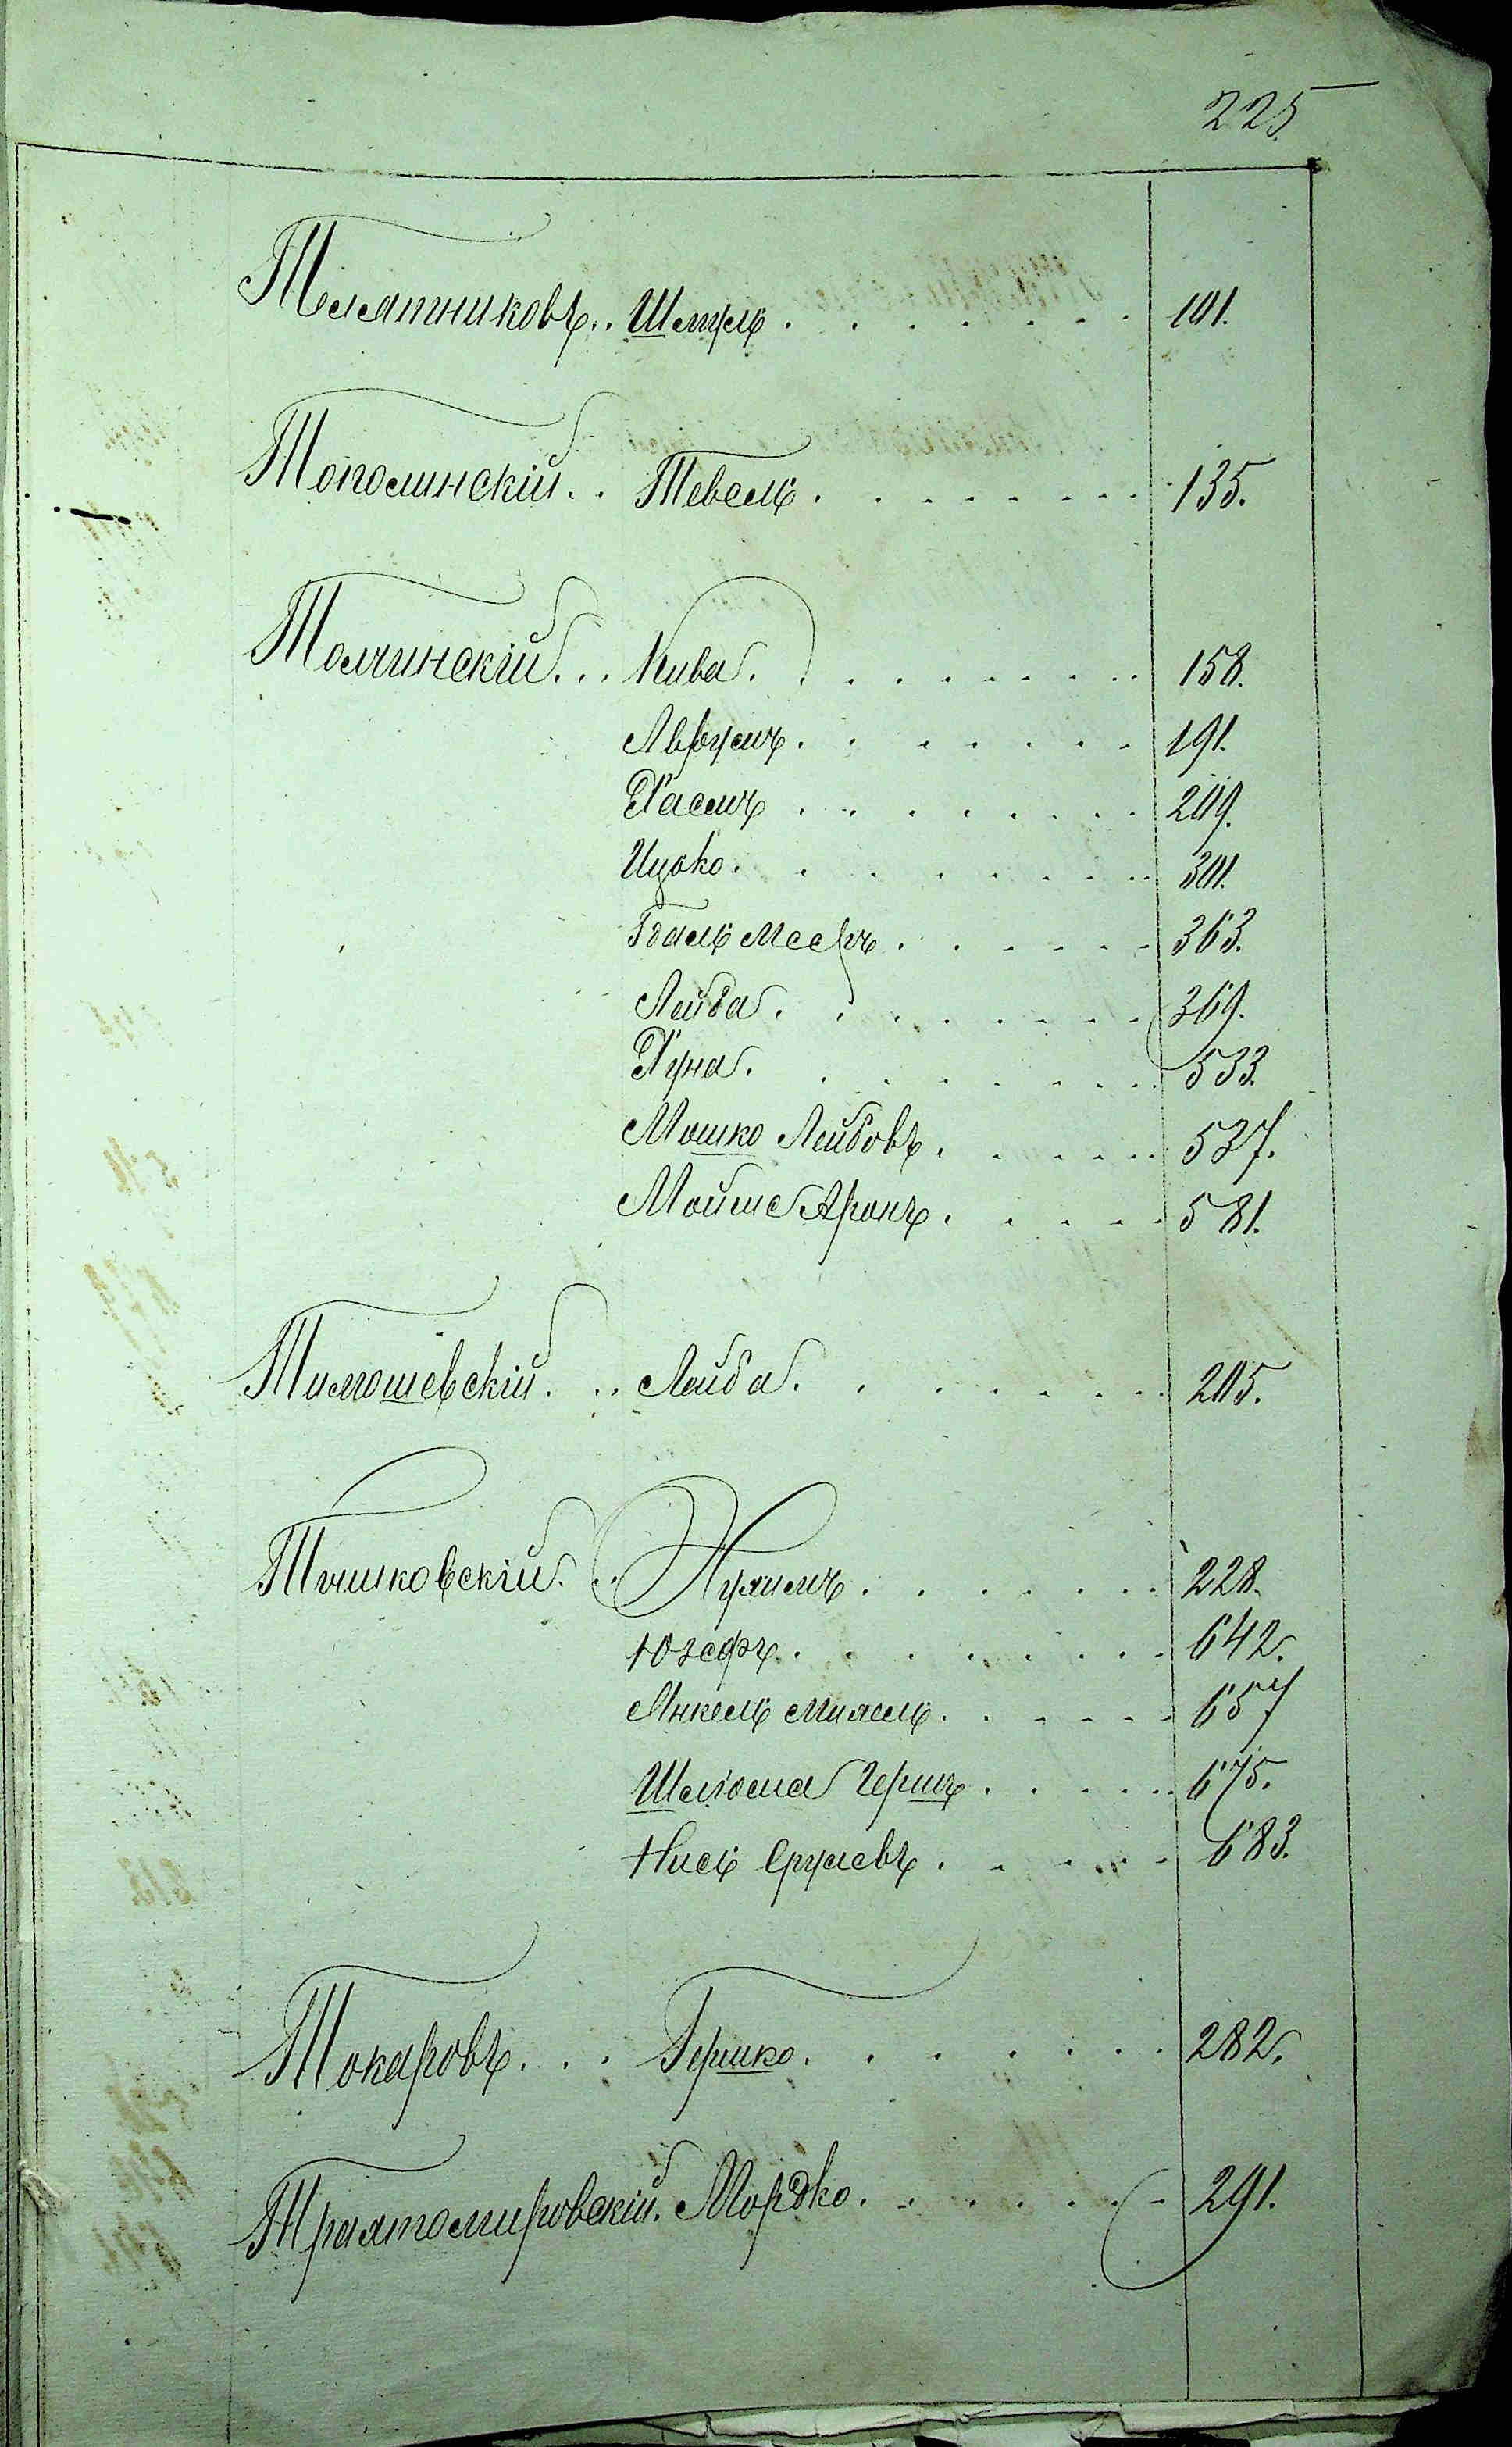 225.
Телятниковъ.. Шмуль . . . . . . . 101.
Тополинскій. . Тевель . . . . . . . 135.
Толчинскій. . . Кива . . . . . . . 158.
Аврумъ . . . . . . . 191.
Хаимъ . . . . . . . 209.
Ицко . . . . . . . 301.
Годаль Мееръ . . . . . . 363.
Лейба . . . . . . . 369.
Хуна . . . . . . . 533.
Мошко Лейбовъ . . . . . 537.
Мойше Аронъ . . . . . 581.
Тимошевскій. . . Лейба . . . . . . . 205.
Тышковскій. . . Нухимъ . . . . . . 228.
Юзефъ . . . . . . . 642.
Янкель . . . . . 657
Шлёма Гершъ . . . . . 675.
Нись Срулевъ . . . . . 683.
Токаровъ. . . Гершко . . . . . . . 282.
Трахтомировскій. Мордко . . . . . . 291.